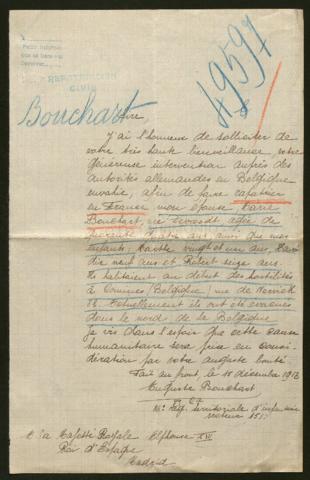 49597
REPATRIACION
CIVIL
Bouchart
Sire,
J'ai l'honneur de solliciter de
votre très haute bienveillance, votre
généreuse intervention auprès des
autorités allemandes en Belgique
envahie, afin de faire rapatrier
en France mon épouse Marie
Bouchart, née agée de
quatre ans ainsi que mes
Enfants, vingt et un ans
dix neuf ans et Robert seize ans.
Ils habitaient au début des hostilités
à Comines (Belgique) rue de Warwick
58. Actuellement ils ont été évacués
dans le nord de la Belgique
Je vis dans l'espoir que cette cause
humanitaire sera prise en consi-
dération par votre auguste bonté.
Fait au front, le 18 décembre 1917
Auguste Bouchart
territoriale d'infanterie
secteur 151
A Sa Majesté Royale Alphonse XIII
Roi d'Espagne
Madrid